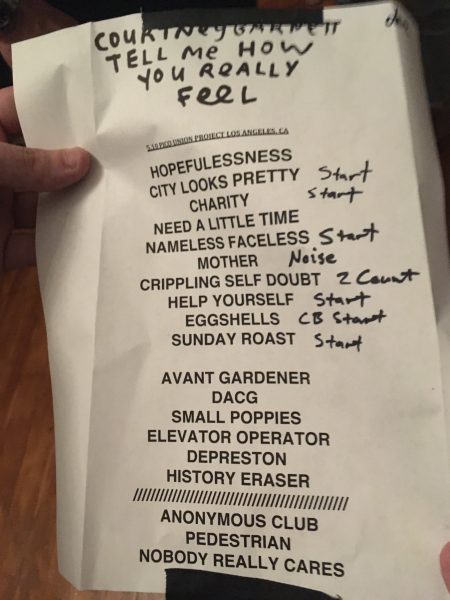 COURTNEY BARNETT
TELL Me HOW
YOU REALLY
FeeL
5.18 PICO UNION PROJECT LOS ANGELES, CA
HOPEFULESSNESS
CITY LOOKS PRETTY Start
CHARITY Start
NEED A LITTLE TIME
NAMELESS FACELESS Start
MOTHER Noise
CRIPPLING SELF DOUBT 2 Count
HELP YOURSELF Start
EGGSHELLS CB Start
SUNDAY ROAST Start
AVANT GARDENER
DACG
SMALL POPPIES
ELEVATOR OPERATOR
DEPRESTON
HISTORY ERASER
////////////////////////////////////
ANONYMOUS CLUB
PEDESTRIAN
NOBODY REALLY CARES